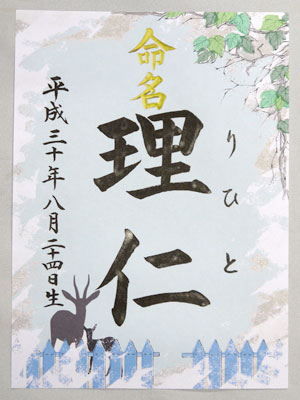 命名
りひと
理仁
平成三十年八月二十四日生